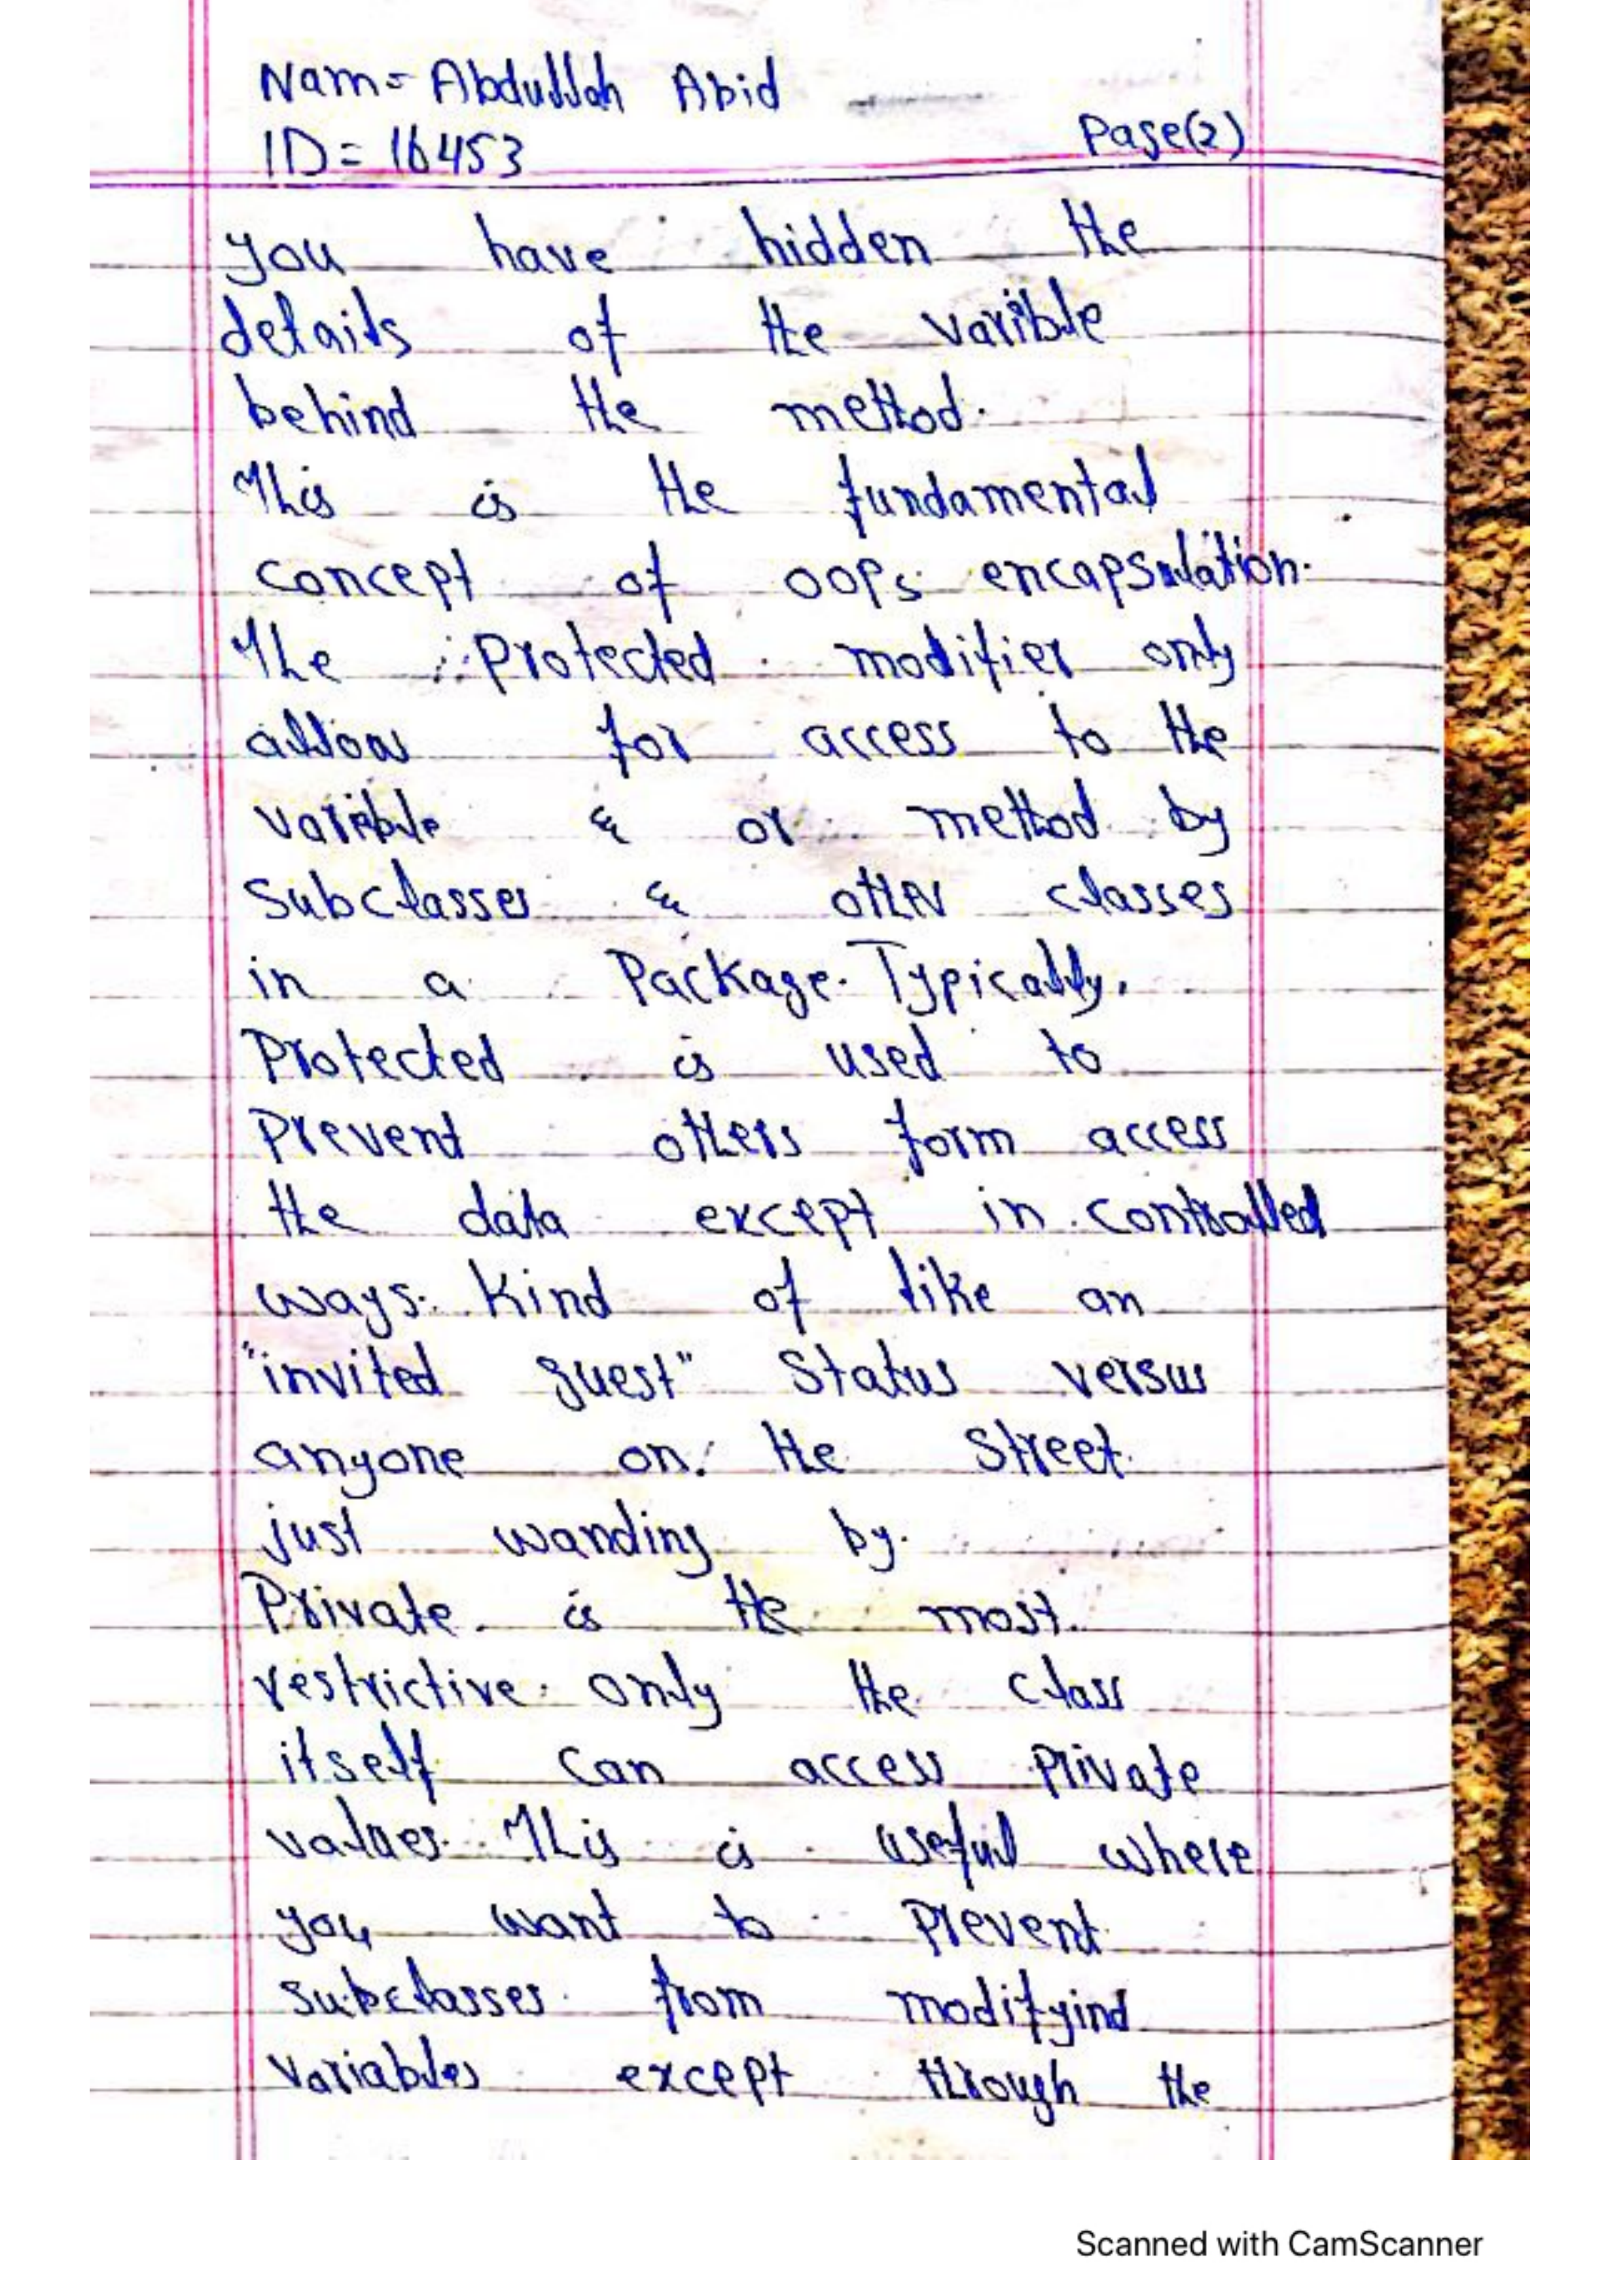 Nam= Abdullah Abid
ID= 16453
Page(2)
you have hidden the
details of the varible
behind the method.
This is the fundamental
concept of OOPs encapsulation.
The protected modifier only
allow for access to the
varible & or method by
subclasses & other classes
in a Package. Typically,
Protected is used to
Prevent others form access
the data except in controlled
ways. Kind of like an
"invited guest" Status versus
anyone on the Street
just wanding by.
Private is the most
restrictive. only the class
itself can access private
values. This is useful where
you want to prevent
subclasses from modifyind
variables except through the
Scanned with CamScanner